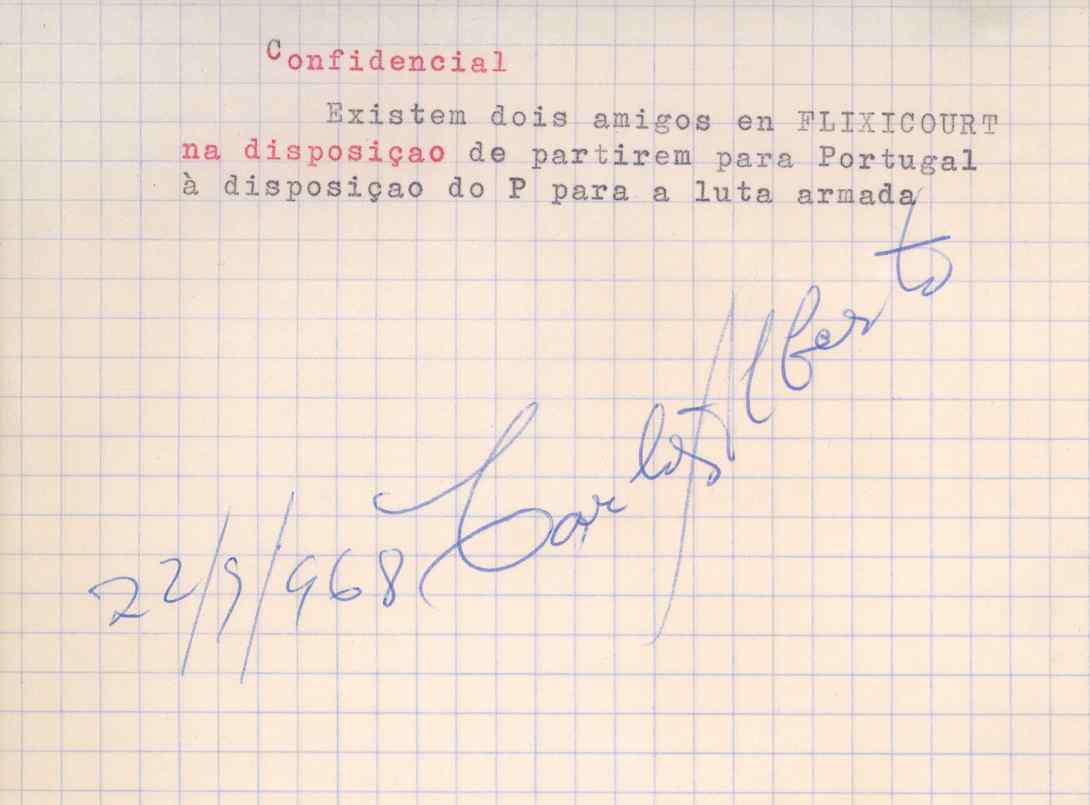 Confidencial
Existem dois amigos en FLIXICOURT
na disposiçao de partirem para Portugal
à disposiçao do P para a luta armada
22/9/968 Carlos Alberto